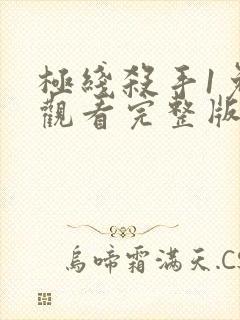 極綫殺手1免
觀看完整版
烏啼霜滿天.CS